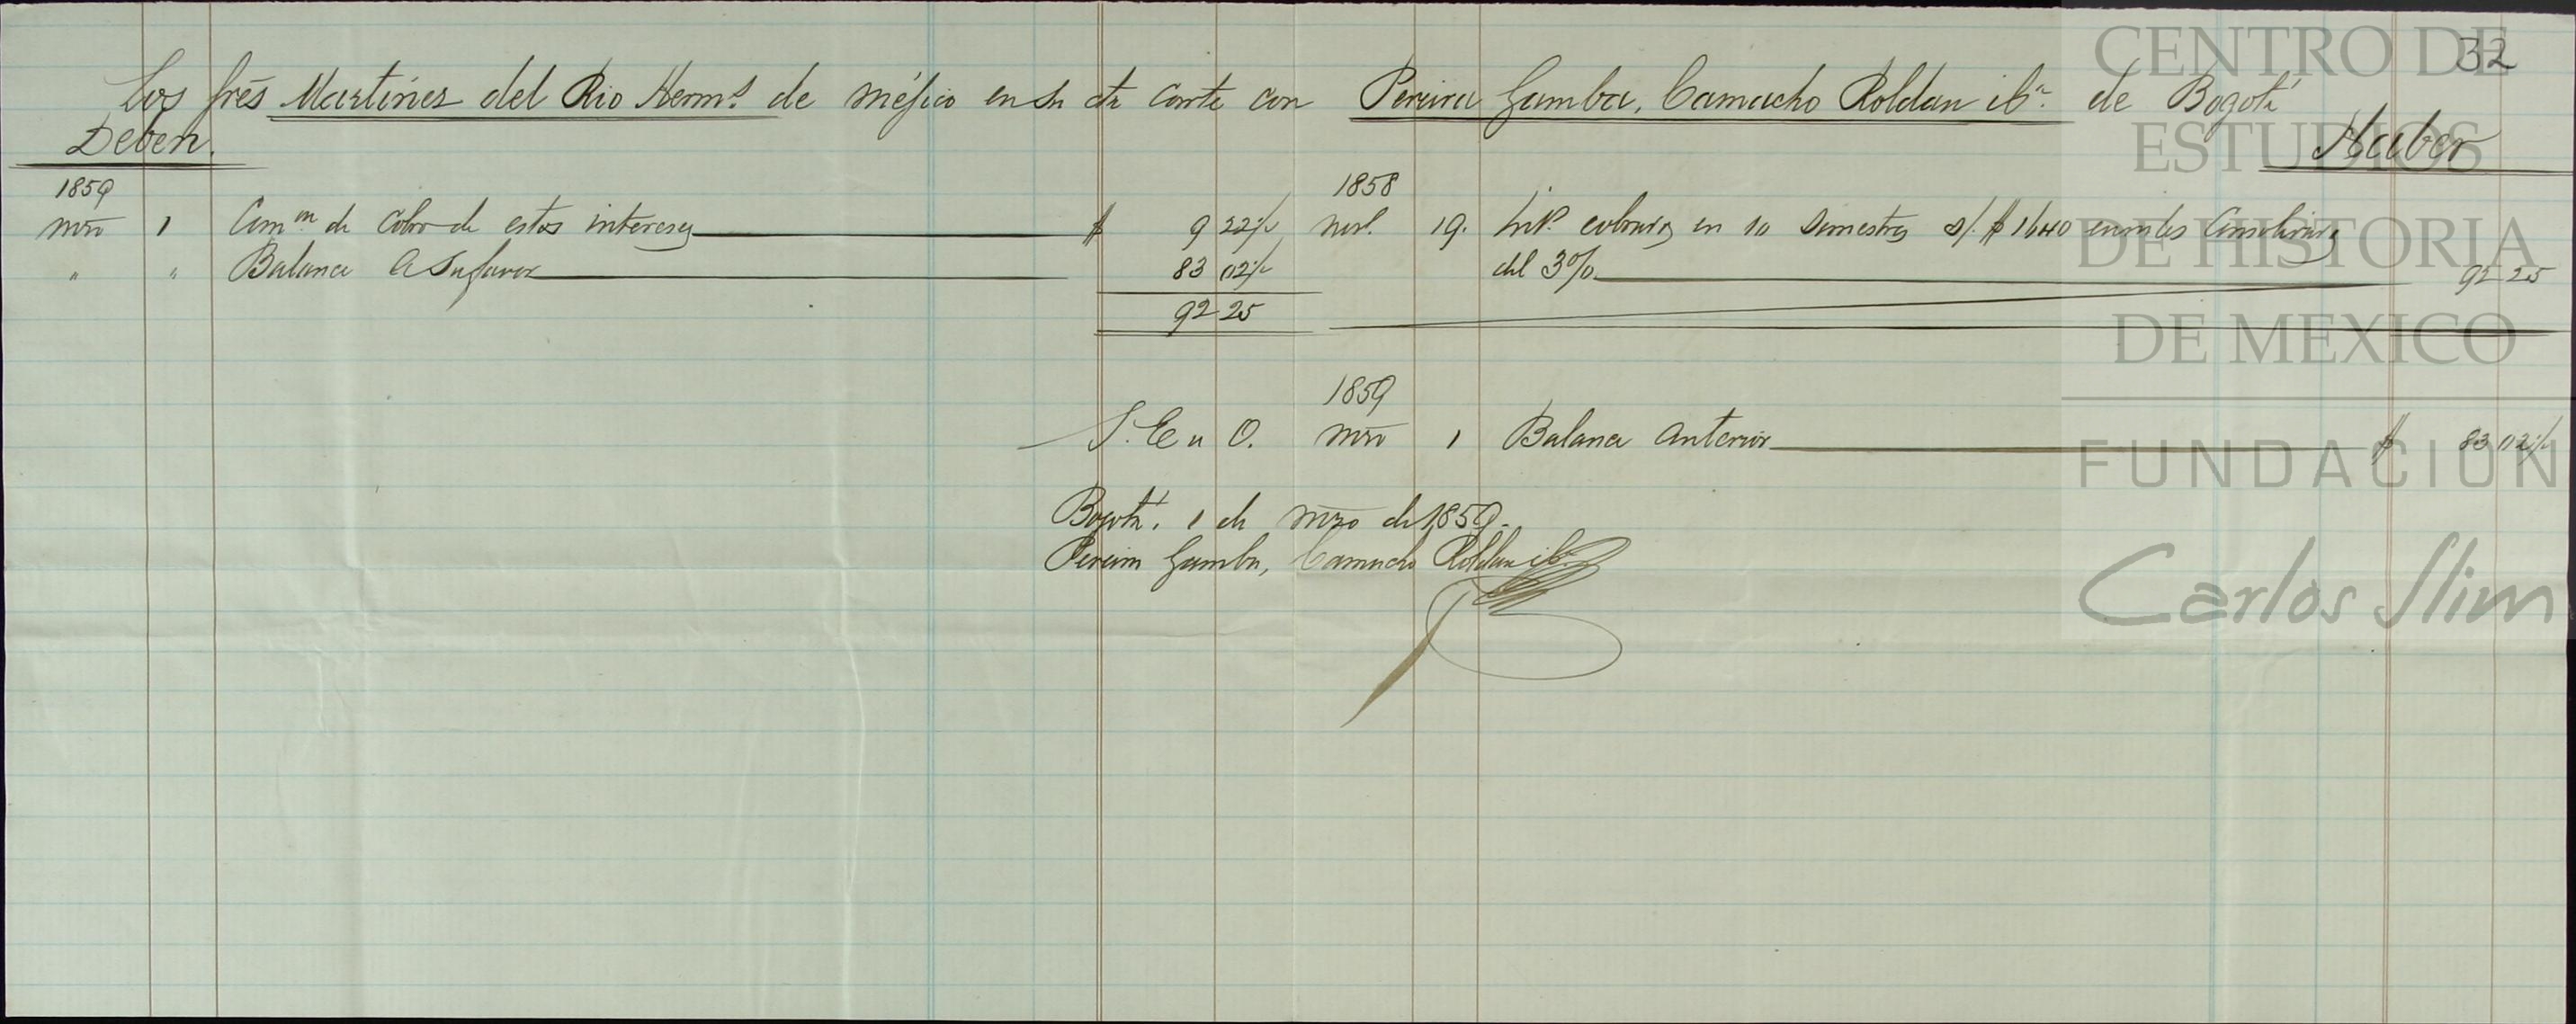 32
Los Sres Martínez del Rio Herms de Méjico en su cta corrte con Pereira Gamba, Camacho Roldan i Ca de Bogotá
Deben. Haber
1859
mzo 1 Comon de cobro de estos intereses $ 9 22½
" " Balance a su favor 83 02½
92 25
1858
19. Ints cobrados en 10 semestres s/. $ 1640 en vales Consolidados
del 3% 92 25
1859
S. E u O. mzo 1 Balance anterior $ 83 02½
Bogotá, 1 de mzo de 1859.
Pereira Gamba, Camacho Roldan i Ca
CENTRO DE
ESTUDIOS
DE HISTORIA
DE MEXICO
FUNDACION
Carlos Slim